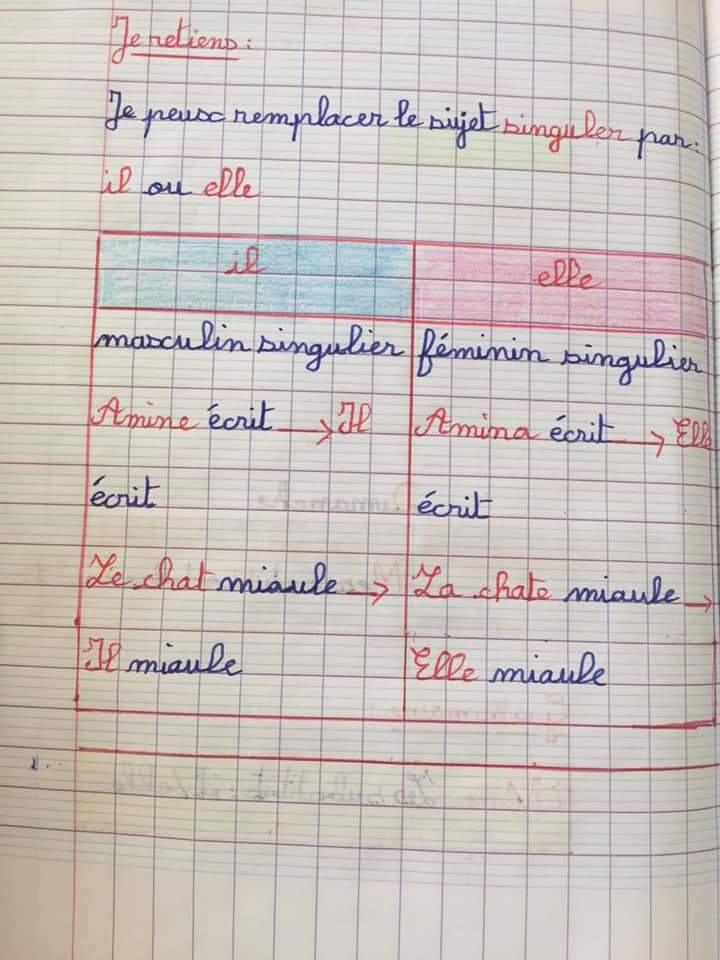 Je retiens :
Je peux remplacer le sujet singuler par :
il ou elle
il elle
masculin singulier féminin singulier
Amine écrit → Il Amina écrit → Elle
écrit écrit
Le chat miaule → La chate miaule →
Il miaule Elle miaule